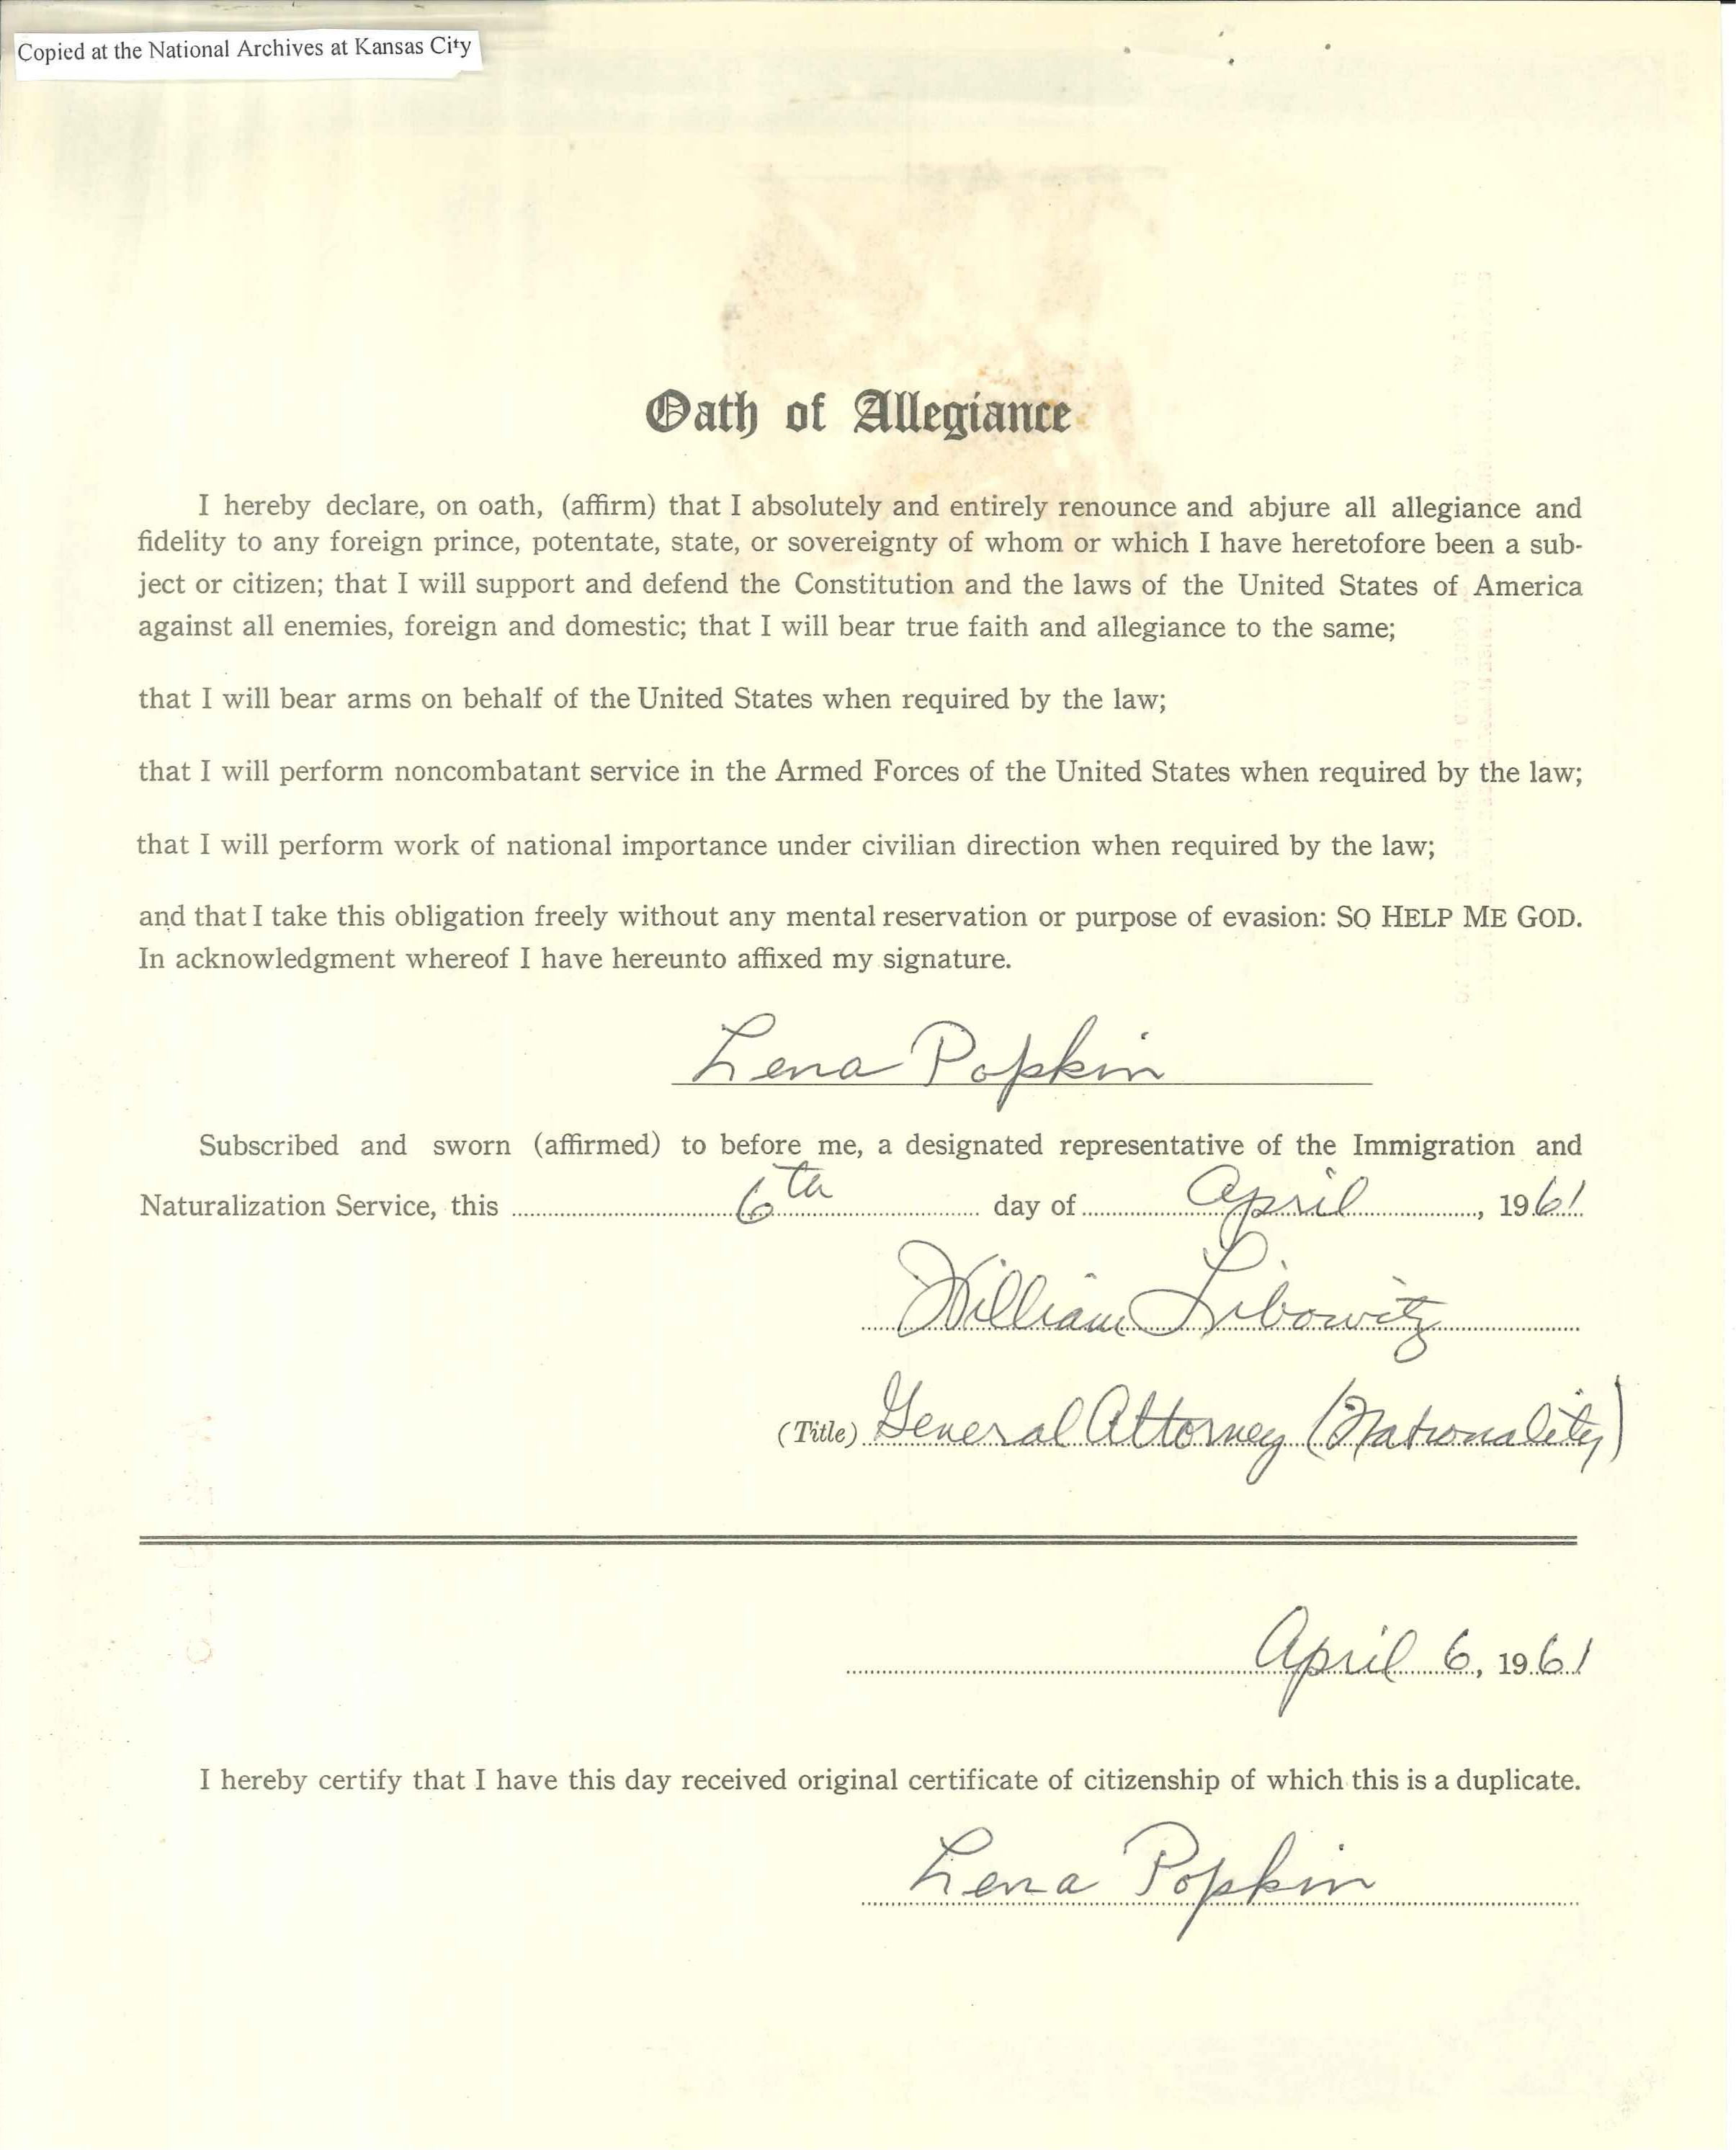 Copied at the National Archives at Kansas City
Oath of Allegiance
I hereby declare, on oath, (affirm) that I absolutely and entirely renounce and abjure all allegiance and
fidelity to any foreign prince, potentate, state, or sovereignty of whom or which I have heretofore been a sub-
ject or citizen; that I will support and defend the Constitution and the laws of the United States of America
against all enemies, foreign and domestic; that I will bear true faith and allegiance to the same;
that I will bear arms on behalf of the United States when required by the law;
that I will perform noncombatant service in the Armed Forces of the United States when required by the law;
that I will perform work of national importance under civilian direction when required by the law;
and that I take this obligation freely without any mental reservation or purpose of evasion: SO HELP ME GOD.
In acknowledgment whereof I have hereunto affixed my signature.
Lena Popkin
Subscribed and sworn (affirmed) to before me, a designated representative of the Immigration and
Naturalization Service, this 6th day of April, 1961
William Libowitz
(Title) General Attorney (Nationality)
April 6, 1961
I hereby certify that I have this day received original certificate of citizenship of which this is a duplicate.
Lena Popkin